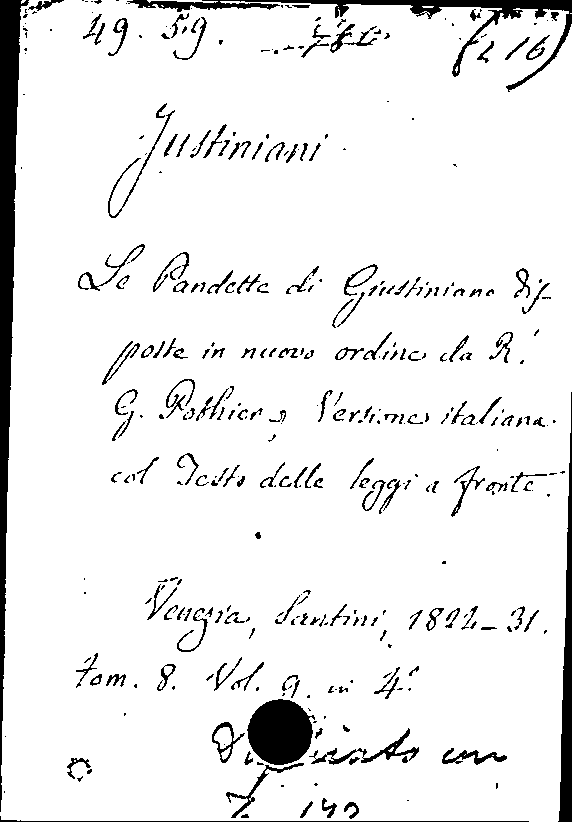 49. 59. (L 16)
Justiniani
Le Pandette di Giustiniano dis-
poste in nuovo ordine da R.
G. Pothier, Versione italiana
col Testo delle leggi a fronte.
Venezia, Santini, 1824-31.
tom. 8. Vol. 9. in 4°
con